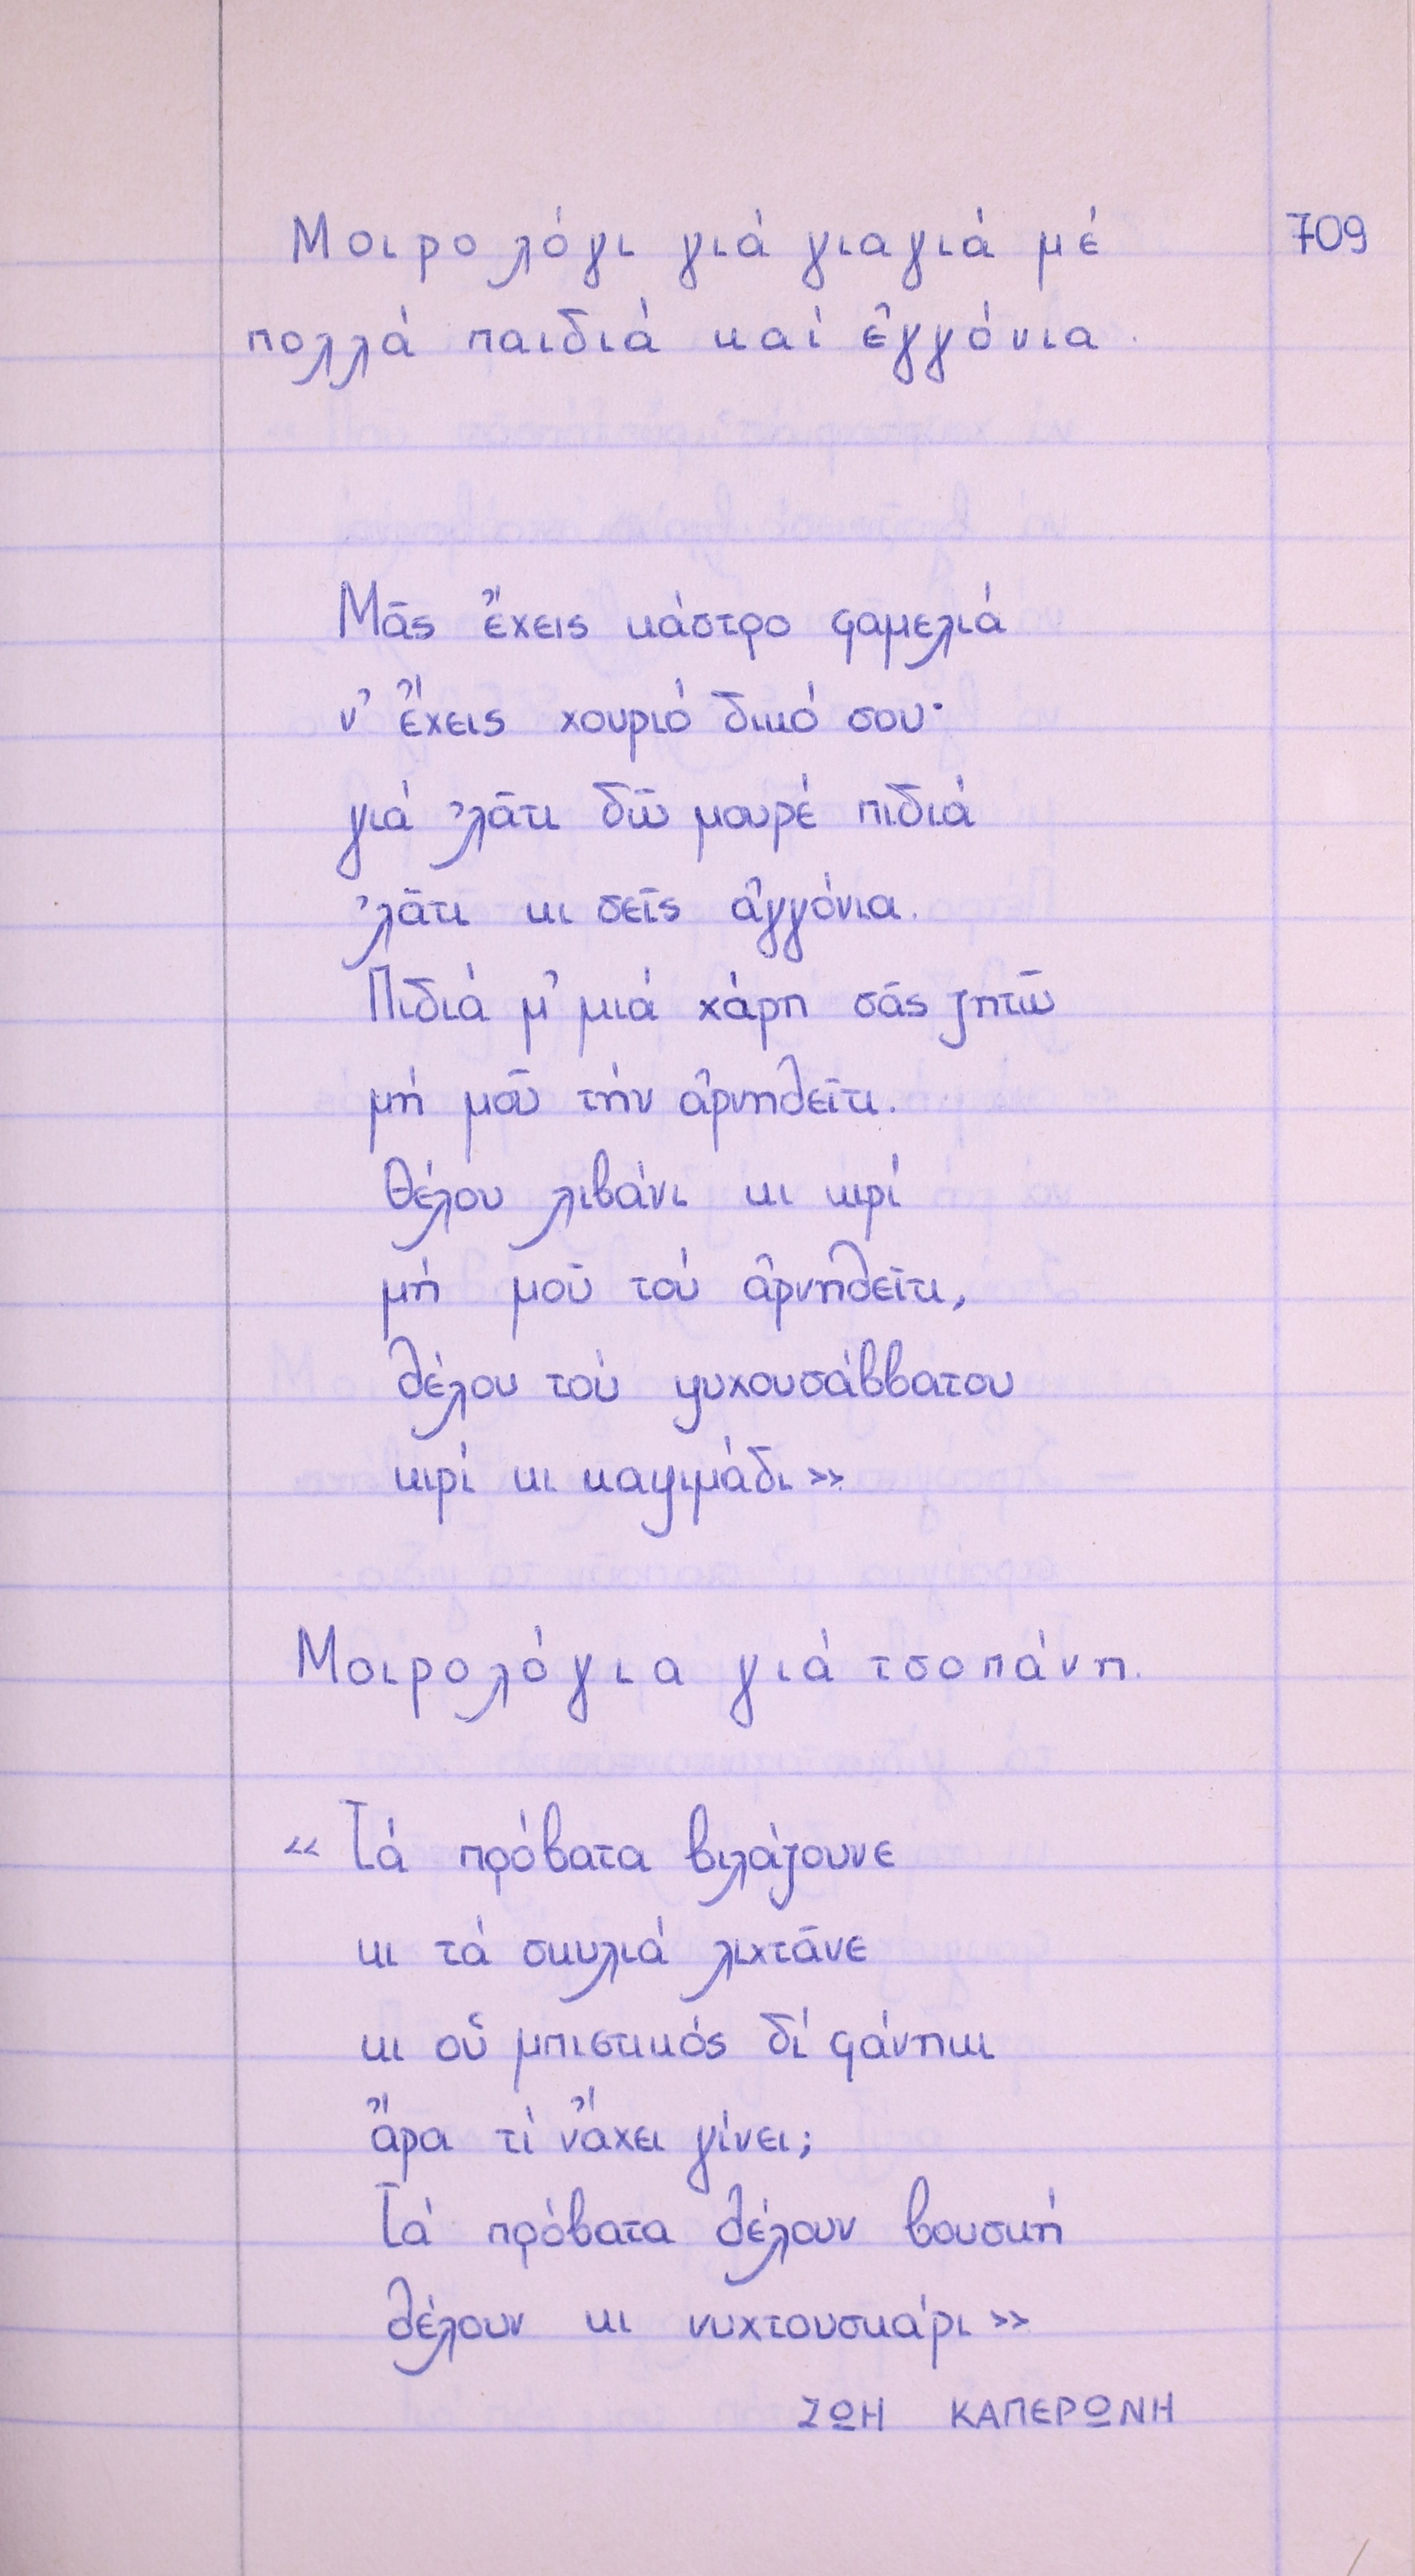 Μοιρολόγι γιά γιαγιά μέ 709
πολλά παιδιά καί ἐγγόνια.
Μᾶς ἔχεις κάστρο φαμελιά
ν' ἔχεις χουριό δικό σου·
γιά 'λᾶτι δῶ μαυρέ πιδιά
'λᾶτι κι σεῖς ἀγγόνια.
Πιδιά μ' μιά χάρη σᾶς ζητῶ
μή μοῦ τήν ἀρνηθεῖτι.
Θέλου λιβάνι κι κιρί
μή μοῦ τού ἀρνηθεῖτι,
θέλου τού ψυχουσάββατου
κιρί κι καψιμάδι»
Μοιρολόγια γιά τσοπάνη.
«Τά πρόβατα βιλάζουνε
κι τά σκυλιά λιχτᾶνε
κι οὗ μπιστικός δί φάνηκι
ἄρα τί νἄχει γίνει;
Τά πρόβατα θέλουν βουσκή
θέλουν κι νυχτουσκάρι»
ΖΩΗ ΚΑΠΕΡΩΝΗ